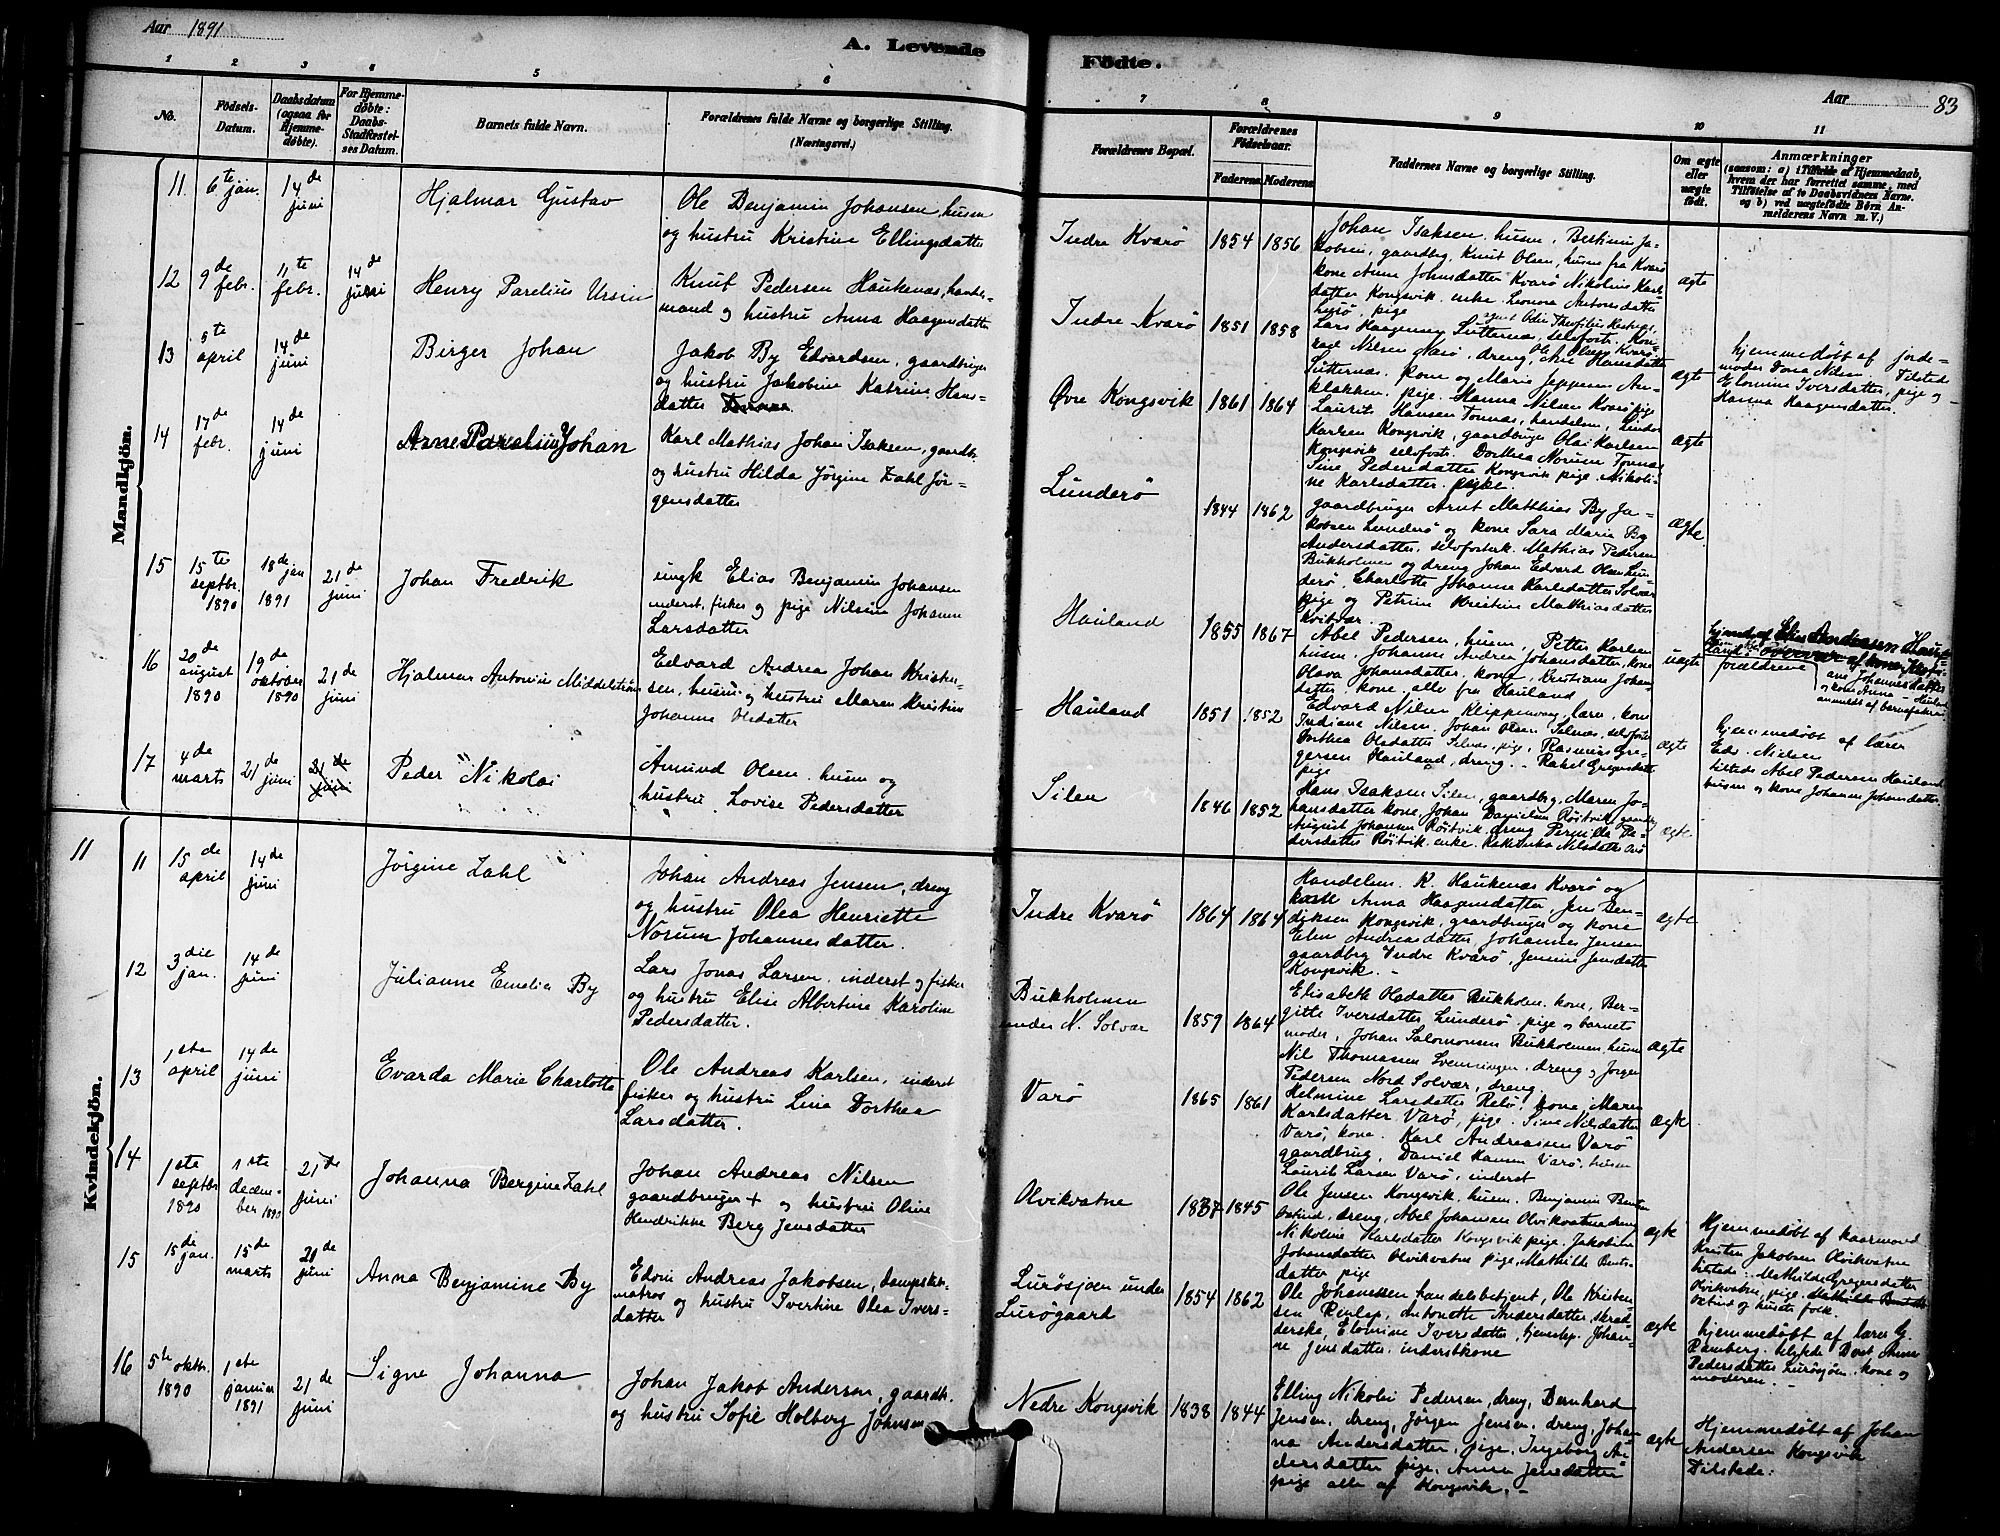 Aar 1891
A. Levende
Födte.
Aar
83
1 2 3 4 5 6
7 8 9 10 11
No.
Födsels-
Datum.
Daabsdatum
(ogsaa for
Hjemme-
døbte).
For Hjemme-
døbte:
Daabs-
Stadfæstel-
ses Datum.
Barnets fulde Navn.
Forældrenes fulde Navne og borgerlige Stilling.
(Næringsvei.)
Forældrenes Bopæl.
Forældrenes
Födselsaar.
Faderens. Moderens.
Faddernes Navne og borgerlige Stilling.
Om ægte
eller
uægte
født.
Anmærkninger
(saasom: a) i Tilfælde af Hjemmedaab,
hvem der har forrettet samme, med
Tilføielse af to Daabsvidners Navne.
og b) ved uægtefödte Børn An-
melderens Navn m. V.)
Mandkjön.
11.
6te
jan.
14de
juni
Hjalmar Gustav
Ole Benjamin Johansen, husm
og hustru Kristine Ellingsdatter
Indre Kvarö
1854 1856
Johan Isaksen, husm.
kobsen, gaardbrg, Knut Olsen, husm fra Kvarö
kone Anne Johnsdatter Kvarö
datter Kongsvik, enke. Leonora Antonsdatter
pige
ægte
12
9de
febr.
11te
febr.
14de
juni
Henry Parelius Ursin
Knut Pedersen Haukenæs, handels-
mand og hustru Anna Haagensdatter
Indre Kvarö
1851 1858
Lars Haagensen
Nilsen Varö, dreng, Ole Olsen Kvarö
kone og Marie Jeppesen
pige. Hanna Nilsen Kvarö pige
ægte
hjemmedöbt af jorde-
moder Dona Nilsen. Tilstede
Elomine Iversdatter, pige og
Hanna Haagensdatter.
13
5te
april
14de
juni
Birger Johan
Jakob By Edvardsen, gaardbruger
og hustru Jakobine Katrine Hans-
datter
Övre Kongsvik
1861 1864
Laurits Hansen Tonnæs, handelsm,
Karlsen Kongsvik, gaardbruger Olai Karlsen
Kongsvik selvforst. Dorthea Norum Tonnæs
Sine Pedersdatter Kongsvik pige. Nikoli-
ne Karlsdatter. pige
ægte
14
17de
febr.
14de
juni
Arne Parelius Johan
Karl Mathias Johan Isaksen, gaardb.
og hustru Hilda Jörgine Zahl Jör-
gensdatter
Lunderö
1844 1862
gaardbruger Arnt Matthias By Ja-
kobsen Lunderö og kone Sara Marie By
Andersdatter, selvfosterk. Mathias Pedersen
Bukholmen og dreng Johan Edvard Olsen Lun-
derö, Charlotte Johanna Karlsdatter Solvær
pige og Petrine Kristine Mathiasdatter
Kvitvær.
ægte
15
15te
septbr.
1890
18de
jan
1891
21de
juni
Johan Fredrik
ungk Elias Benjamin Johansen
inderst, fisker og pige Nilsine Johanne
Larsdatter
Hauland
1855 1867
Abel Pedersen, husm, Petter Karlsen
husm. Johanne Andrea Johansdatter, kone
Olava Johansdatter, kone, Kristiane Johan-
datter, kone, alle fra Hauland
uægte
forældrene
16
20de
august
1890
19de
oktober
1890
21de
juni
Hjalmar Antonius Middelström
Edvard Andrea Johan Kristen-
sen, husm og hustru Maren Kristine
Johanna Olsdatter
Hauland
1851 1852
Edvard Nilsen Klippenvaag, lærer, kone
Indiane Nilsen, Johan Olsen Selnæs, selvforst.
Dorthea Olsdatter Selnæs, pige, Rasmus Gre-
gersen Hauland, dreng. Rakel Gregersdatter
pige
ægte
hjemmedöbt af lærer
Eds. Nielsen
tilstede Abel Pedersen Hauland
husm og kone Johanne Johansdatter
17
4de
marts
21de
juni
21de
juni
Peder Nikolai
Amund Olsen, husm og
hustru Lovise Pedersdatter
Silen
1846 1852
Hans Isaksen Silen, gaardbrg, Maren Jo-
hansdatter kone, Johan Danielsen Röitvik, gaardb
August Johansen Röitvik, dreng, Pernille Pe-
dersdatter Röitvik, enke.
ægte
Kvindekjön.
11
11
15de
april
14de
juni
Jörgine Zahl
Johan Andreas Jensen, dreng
og hustru Olea Henriette
Norum Johannesdatter.
Indre Kvarö
1864 1864
Handelsm. K. Haukenæs Kvarö og
Anna Haagensdatter, Jens Ben-
diksen Kongsvik, gaardbruger og kone
Elen Andreasdatter, Johannes Jensen
gaardbrg Indre Kvarö, Jensine Jensdatter
Kongsvik.
ægte
12
3die
jan.
14de
juni
Julianne Emelie By
Lars Jonas Larsen, inderst og fisker
og hustru Elise Albertine Karoline
Pedersdatter.
Bukholmen
under N. Solvær
1859 1864
Elisabeth Olsdatter Bukholm. kone, Ber-
gitte Iversdatter Lunderö, pige og barnets
moder, Johan Salomonsen Bukholmen, husm
Nils Thomassen Svenningen, dreng og Jörgen
Pedersen Nord Solvær, dreng.
ægte
13
1ste
april
14de
juni
Evarda Marie Charlotte
Ole Andreas Karlsen, inderst
fisker og hustru Lina Dorthea
Larsdatter.
Varö
1865 1861
Helmine Larsdatter Relö, kone, Maren
Karlsdatter Varö, pige, Sine Nilsdatter
Varö, kone. Karl Andreassen Varö
gaardbrug, Daniel Hansen Varö, husm
Laurits Larsen Varö, inderst
ægte
14
1ste
septbr
1890
1ste
decem-
ber 1890
21de
juni
Johanna Bergine Zahl
Johan Andreas Nilsen
gaardbruger + og hustru Oline
Hendrikke Berg Jensdatter
Olvikvatne
1837 1845
Ole Jensen Kongsvik, husm. Benjamin Bentsen
dreng, Abel Johansen Olvikvatne dreng
Nikoline Karlsdatter Kongsvik pige, Jakobine
Johansdatter Olvikvatne pige, Mathilde Bents-
datter pige
ægte
Hjemmedöbt af kaarmand
Kristen Jakobsen Olvikvatne
tilstede: Mathilde Gregersdatter
Olvikvatne, pige.
og husets folk.
15
15de
jan.
15de
marts
21de
juni
Anna Benjamine By
Edvin Andreas Jakobsen, dampskibs-
matros og hustru Ivertine Olea Ivers-
datter
Lurösjöen under
Lurögaard
1854 1862
Ole Johannessen handelsbetjent, Ole Kristen-
sen Renlep, Antonette Andersdatter, skræd-
derske, Elomine Iversdatter, tjenestep. Johan-
ne Jensdatter. inderstkone
ægte
hjemmedöbt af lærer G.
Ramberg. tilstede Dort. Anne
Pedersdatter Lurösjöen, kone og
moderen.
16
5te oktbr.
1890
1ste
januar
1891
21de
juni
Signe Johanna
Johan Jakob Andersen, gaardb.
og hustru Sofie Holberg Johnsen
Nedre Kongsvik
1838 1844
Elling Nikolai Pedersen, dreng, Bernhard
Jensen, dreng, Jörgen Jensen, dreng, Johan-
na Andersdatter, pige, Ingeborg An-
dersdatter pige, Anna Jensdatter
pige alle af Kongsvik.
ægte
Hjemmedöbt af Johan
Andersen Kongsvik
Tilstede: